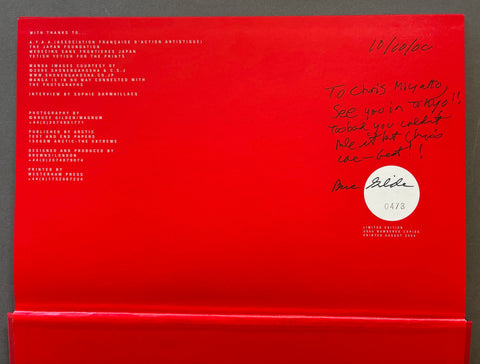 WITH THANKS TO...
A.F.A.A. (ASSOCIATION FRANÇAISE D'ACTION ARTISTIQUE)
THE JAPAN FOUNDATION
MEDECINS SANS FRONTIERES JAPAN
FETISH FETISH FOR THE PRINTS
MANGA IMAGES COURTESY OF
WWW.SHONENGAHOSHA.CO.JP
MANGA IS IN NO WAY CONNECTED WITH
THE PHOTOGRAPHS
INTERVIEW BY SOPHIE DARMAILLACQ
PHOTOGRAPHY BY
©BRUCE GILDEN/MAGNUM
PUBLISHED BY ARCTIC
TEXT AND END PAPERS
150GSM ARCTIC-THE EXTREME
DESIGNED AND PRODUCED BY
BROWNS/LONDON
PRINTED BY
WESTERHAM PRESS
10/10/00
To Chris Miyatto,
See you in Tokyo!!
Too bad you couldn't
be
Bruce Gilden
LIMITED EDITION
NUMBERED COPIES
PRINTED AUGUST